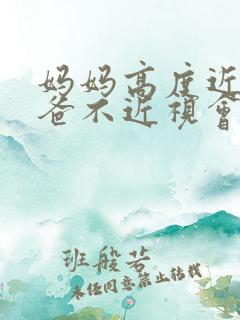 妈妈高度近
爸不近视会
班般若
未经同意禁止转载